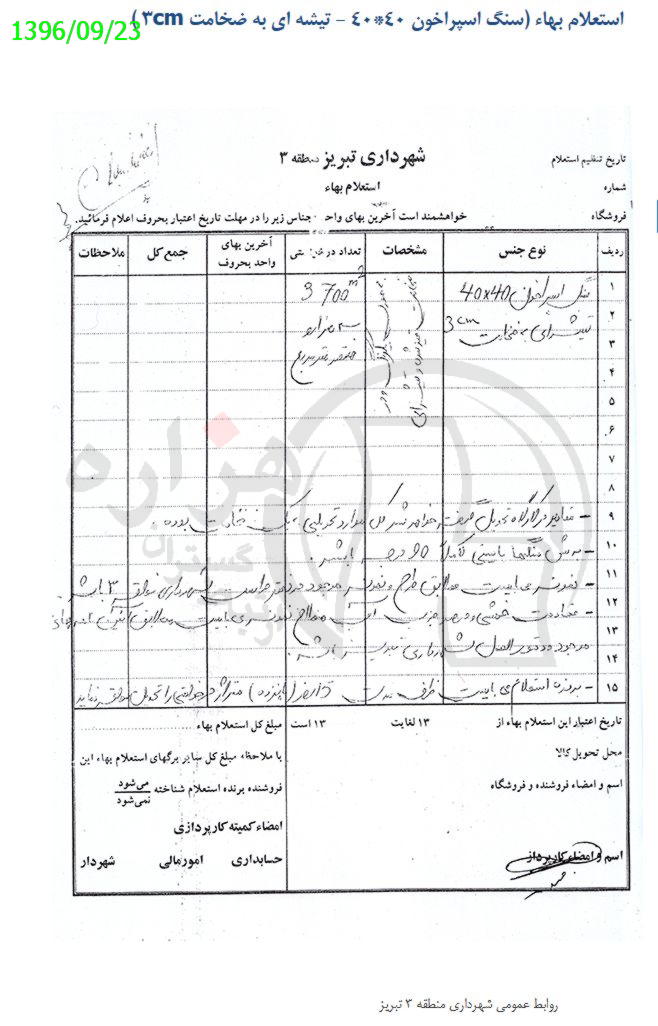 استعلام بهاء (سنگ اسپراخون ۴۰*۴۰ - تیشه ای به ضخامت ۳cm )
1396/09/23
شهرداری تبریز منطقه ۳
تاریخ تنظیم استعلام
استعلام بهاء
شماره
فروشگاه خواهشمند است آخرین بهای واحد جنس زیر را در مهلت تاریخ اعتبار بحروف اعلام فرمائید.
ردیف نوع جنس مشخصات تعداد درخواستی آخرین بهای واحد بحروف جمع کل ملاحظات
۱ سنگ اسپراخون 40x40 3700 m2
۲ تیشه‌ای به ضخامت 3cm سه هزار و
۳ هفتصد متر مربع
۴
۵
۶
۷
۸
۹ - مقادیر در کارگاه تحویل گرفته خواهد شد کل موارد تحویلی یک ضخامت بوده.
۱۰ - برش سنگها بایستی کاملاً 90 درجه باشد.
۱۱ - نمونه می بایست مطابق طرح و نمونه موجود در دفتر شهرداری منطقه ۳ باشد
۱۲ - مقاومت
۱۳
موجود در دستورالعمل شهرداری تبریز باشد.
۱۴
۱۵ - برنده استعلام می بایست ظرف مدت 15 روز (پانزده) متراژ درخواستی را تحویل نماید
تاریخ اعتبار این استعلام بهاء از ۱۳ لغایت ۱۳ است مبلغ کل استعلام بهاء
محل تحویل کالا با ملاحظه مبلغ کل سایر برگهای استعلام بهاء این
اسم و امضاء فروشنده و فروشگاه فروشنده برنده استعلام شناخته می‌شود نمی‌شود
امضاء کمیته کارپردازی
اسم و امضاء کارپرداز حسابداری امورمالی شهردار
هزاره
گستران
روابط عمومی شهرداری منطقه ۳ تبریز